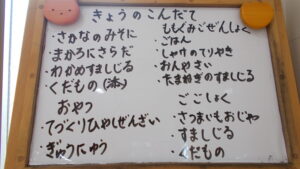 きょうのこんだて
・さかなのみそに
・まかろにさらだ
・わかめすましじる
・くだもの(添)
おやつ
・てづくりひやしぜんざい
・ぎゅうにゅう
ももぐみごぜんしょく
・ごはん
・しゃけのてりやき
・おんやさい
・たまねぎのすましじる
ごごしょく
・さつまいもおじや
・すましじる
・くだもの